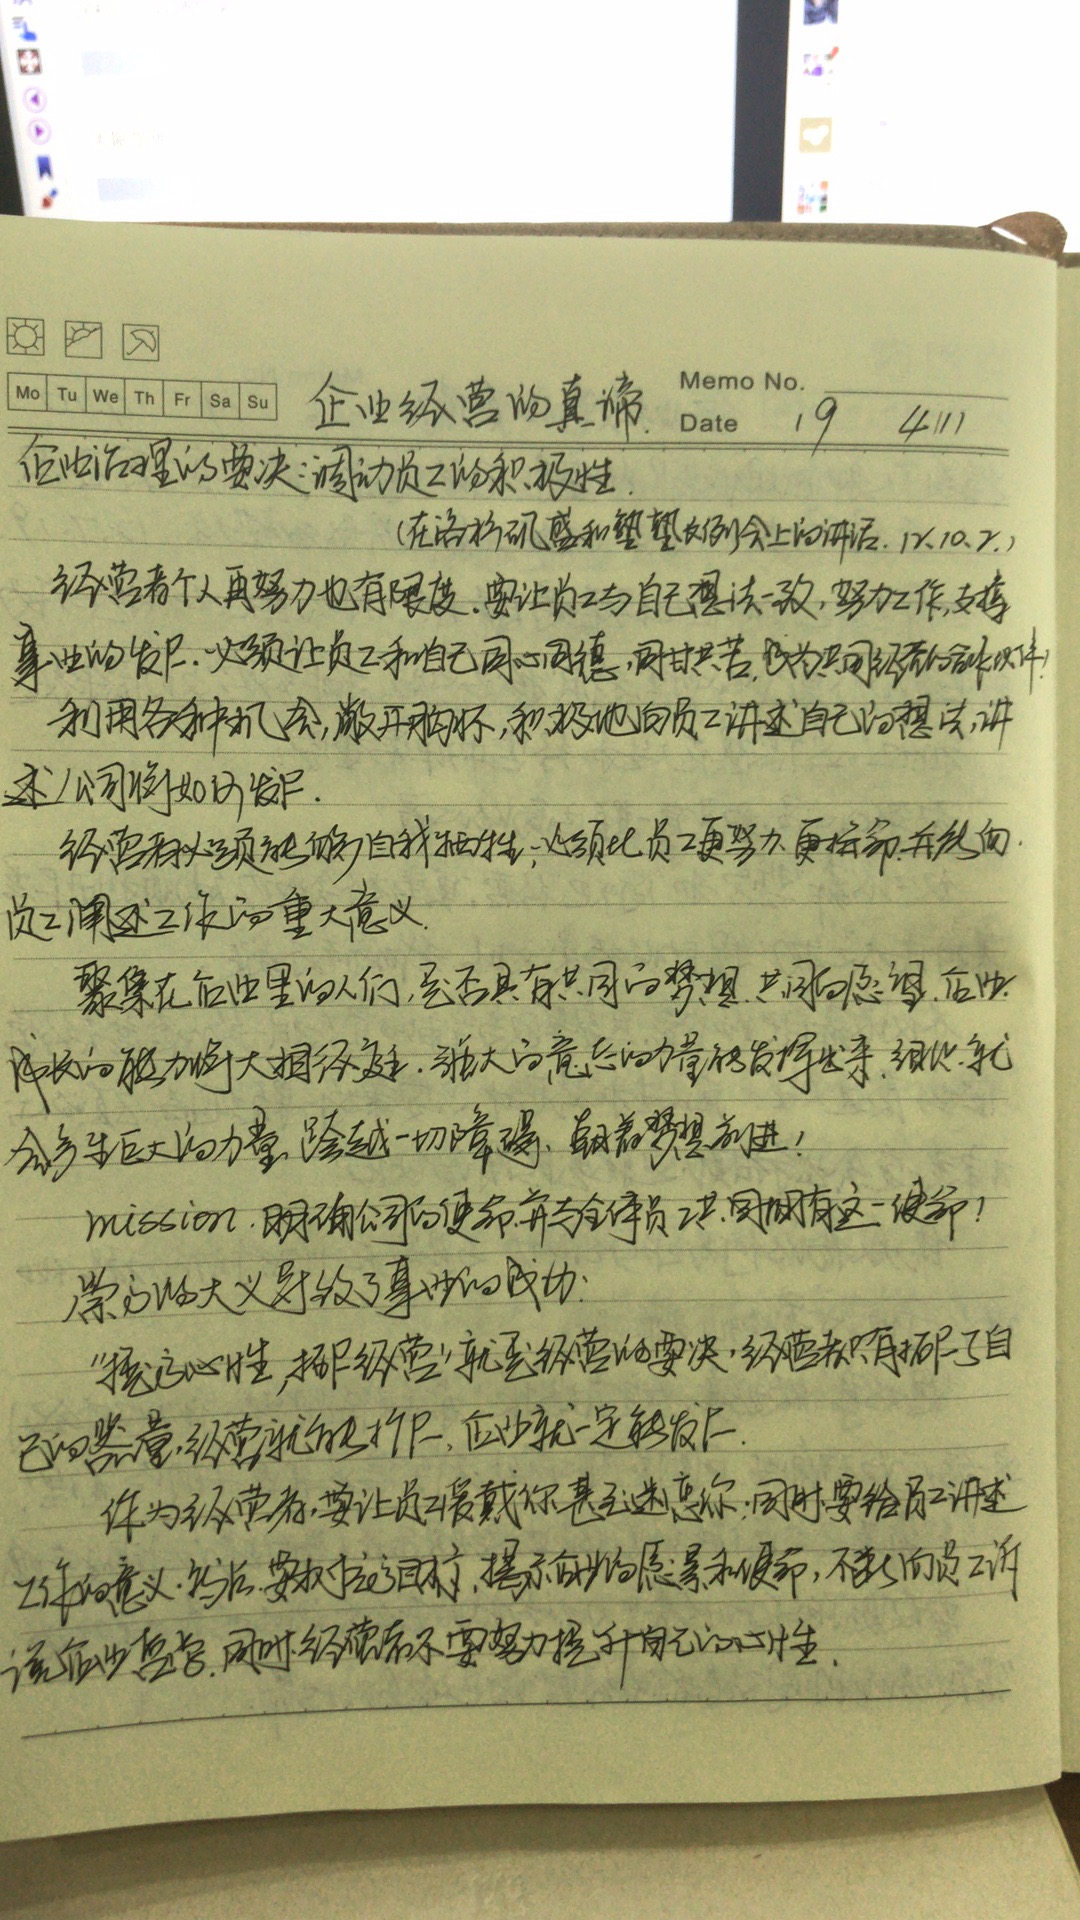 Mo Tu We Th Fr Sa Su
企业经营的真谛.
Memo No.
Date 19 4/11
企业治理的要决:调动员工的积极性.
(在洛杉矶盛和塾塾长例会上的讲话. 12.10.2.)
经营者个人再努力也有限度.要让员工与自己想法一致,努力工作,支撑
事业的发尸.必须让员工和自己同心同德,同甘共苦,成为共同经营的合作伙伴!
利用各种机会,敞开胸怀,积极地向员工讲述自己的想法,讲
述公司将如何发尸.
经营者必须能够自我牺牲;必须比员工更努力.更拚命.并能向
员工阐述工作的重大意义.
聚集在企业里的人们,是否具有共同的梦想.共同的愿望.企业
成长的能力将大相径庭.强大的意志的力量能发挥出来,组织就
会产生巨大的力量、跨越一切障碍、朝着梦想前进!
mission.明确公司的使命.并与全体员工共同拥有这一使命!
崇高的大义导致了事业的成功:
"提高心性,拓尸经营"就是经营的要决.经营者只有拓尸了自
己的器量,经营就能扩尸,企业就一定能发尸.
作为经营者,要让员工爱戴你甚至迷恋你.同时要给员工讲述
工作的意义.然后.要树立高目标,揭示企业的愿景和使命,不断向员工诉
说企业哲学.同时.经营者不要努力提升自己的心性.